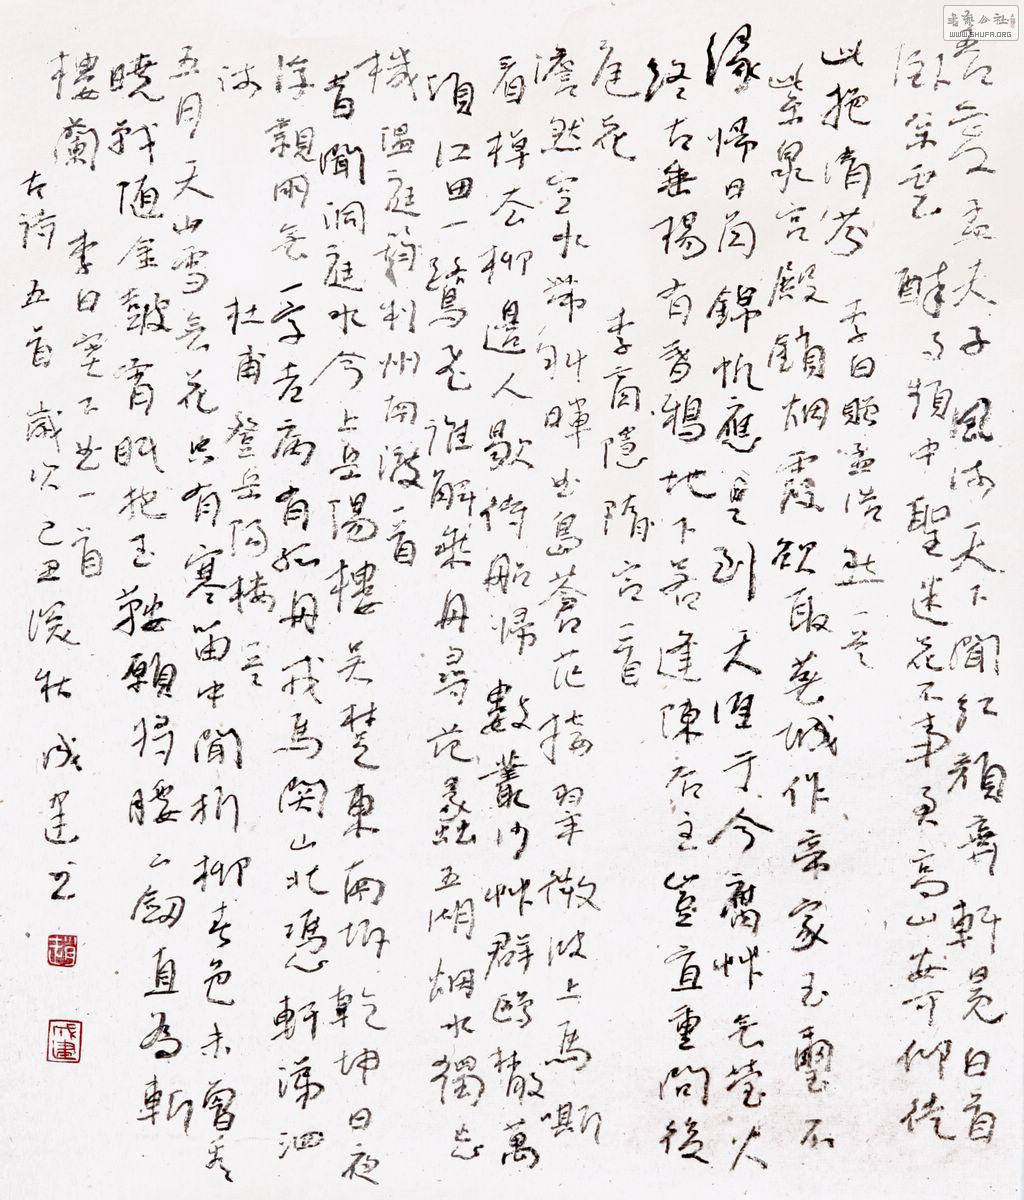 吾愛孟夫子風流天下聞紅顔棄軒冕白首
臥松雲醉月頻中聖迷花不事君高山安可仰徒
此挹清芬 李白贈孟浩然一首
紫泉宫殿鎖烟霞欲取蕪城作帝家玉璽不
緣歸日角錦帆應是到天涯于今腐艸無螢火
終古垂楊有暮鴉地下若逢陳後主豈宜重問後
庭花 李商隱 隋宫一首
澹然空水帶斜暉曲島蒼茫接翠微波上馬嘶
看棹去柳邊人歇待船歸數叢沙艸群鷗散萬
頃江田一鷺飛誰解乘舟尋范蠡五湖烟水獨忘
機 温庭筠利州南渡一首
昔聞洞庭水今上岳陽樓吴楚東南坼乾坤日夜
浮親朋無一字老病有孤舟戎馬關山北憑軒涕泗
流 杜甫 登岳陽樓一首
五月天山雪無花只有寒笛中聞折柳春色未曾看
曉戰隨金鼓宵眠抱玉鞍願將腰下劍直為斬
樓蘭 李白塞下曲一首
古詩五首 歲次己丑深秋 成建書
趙
成建
书艺公社
WWW.SHUFA.ORG